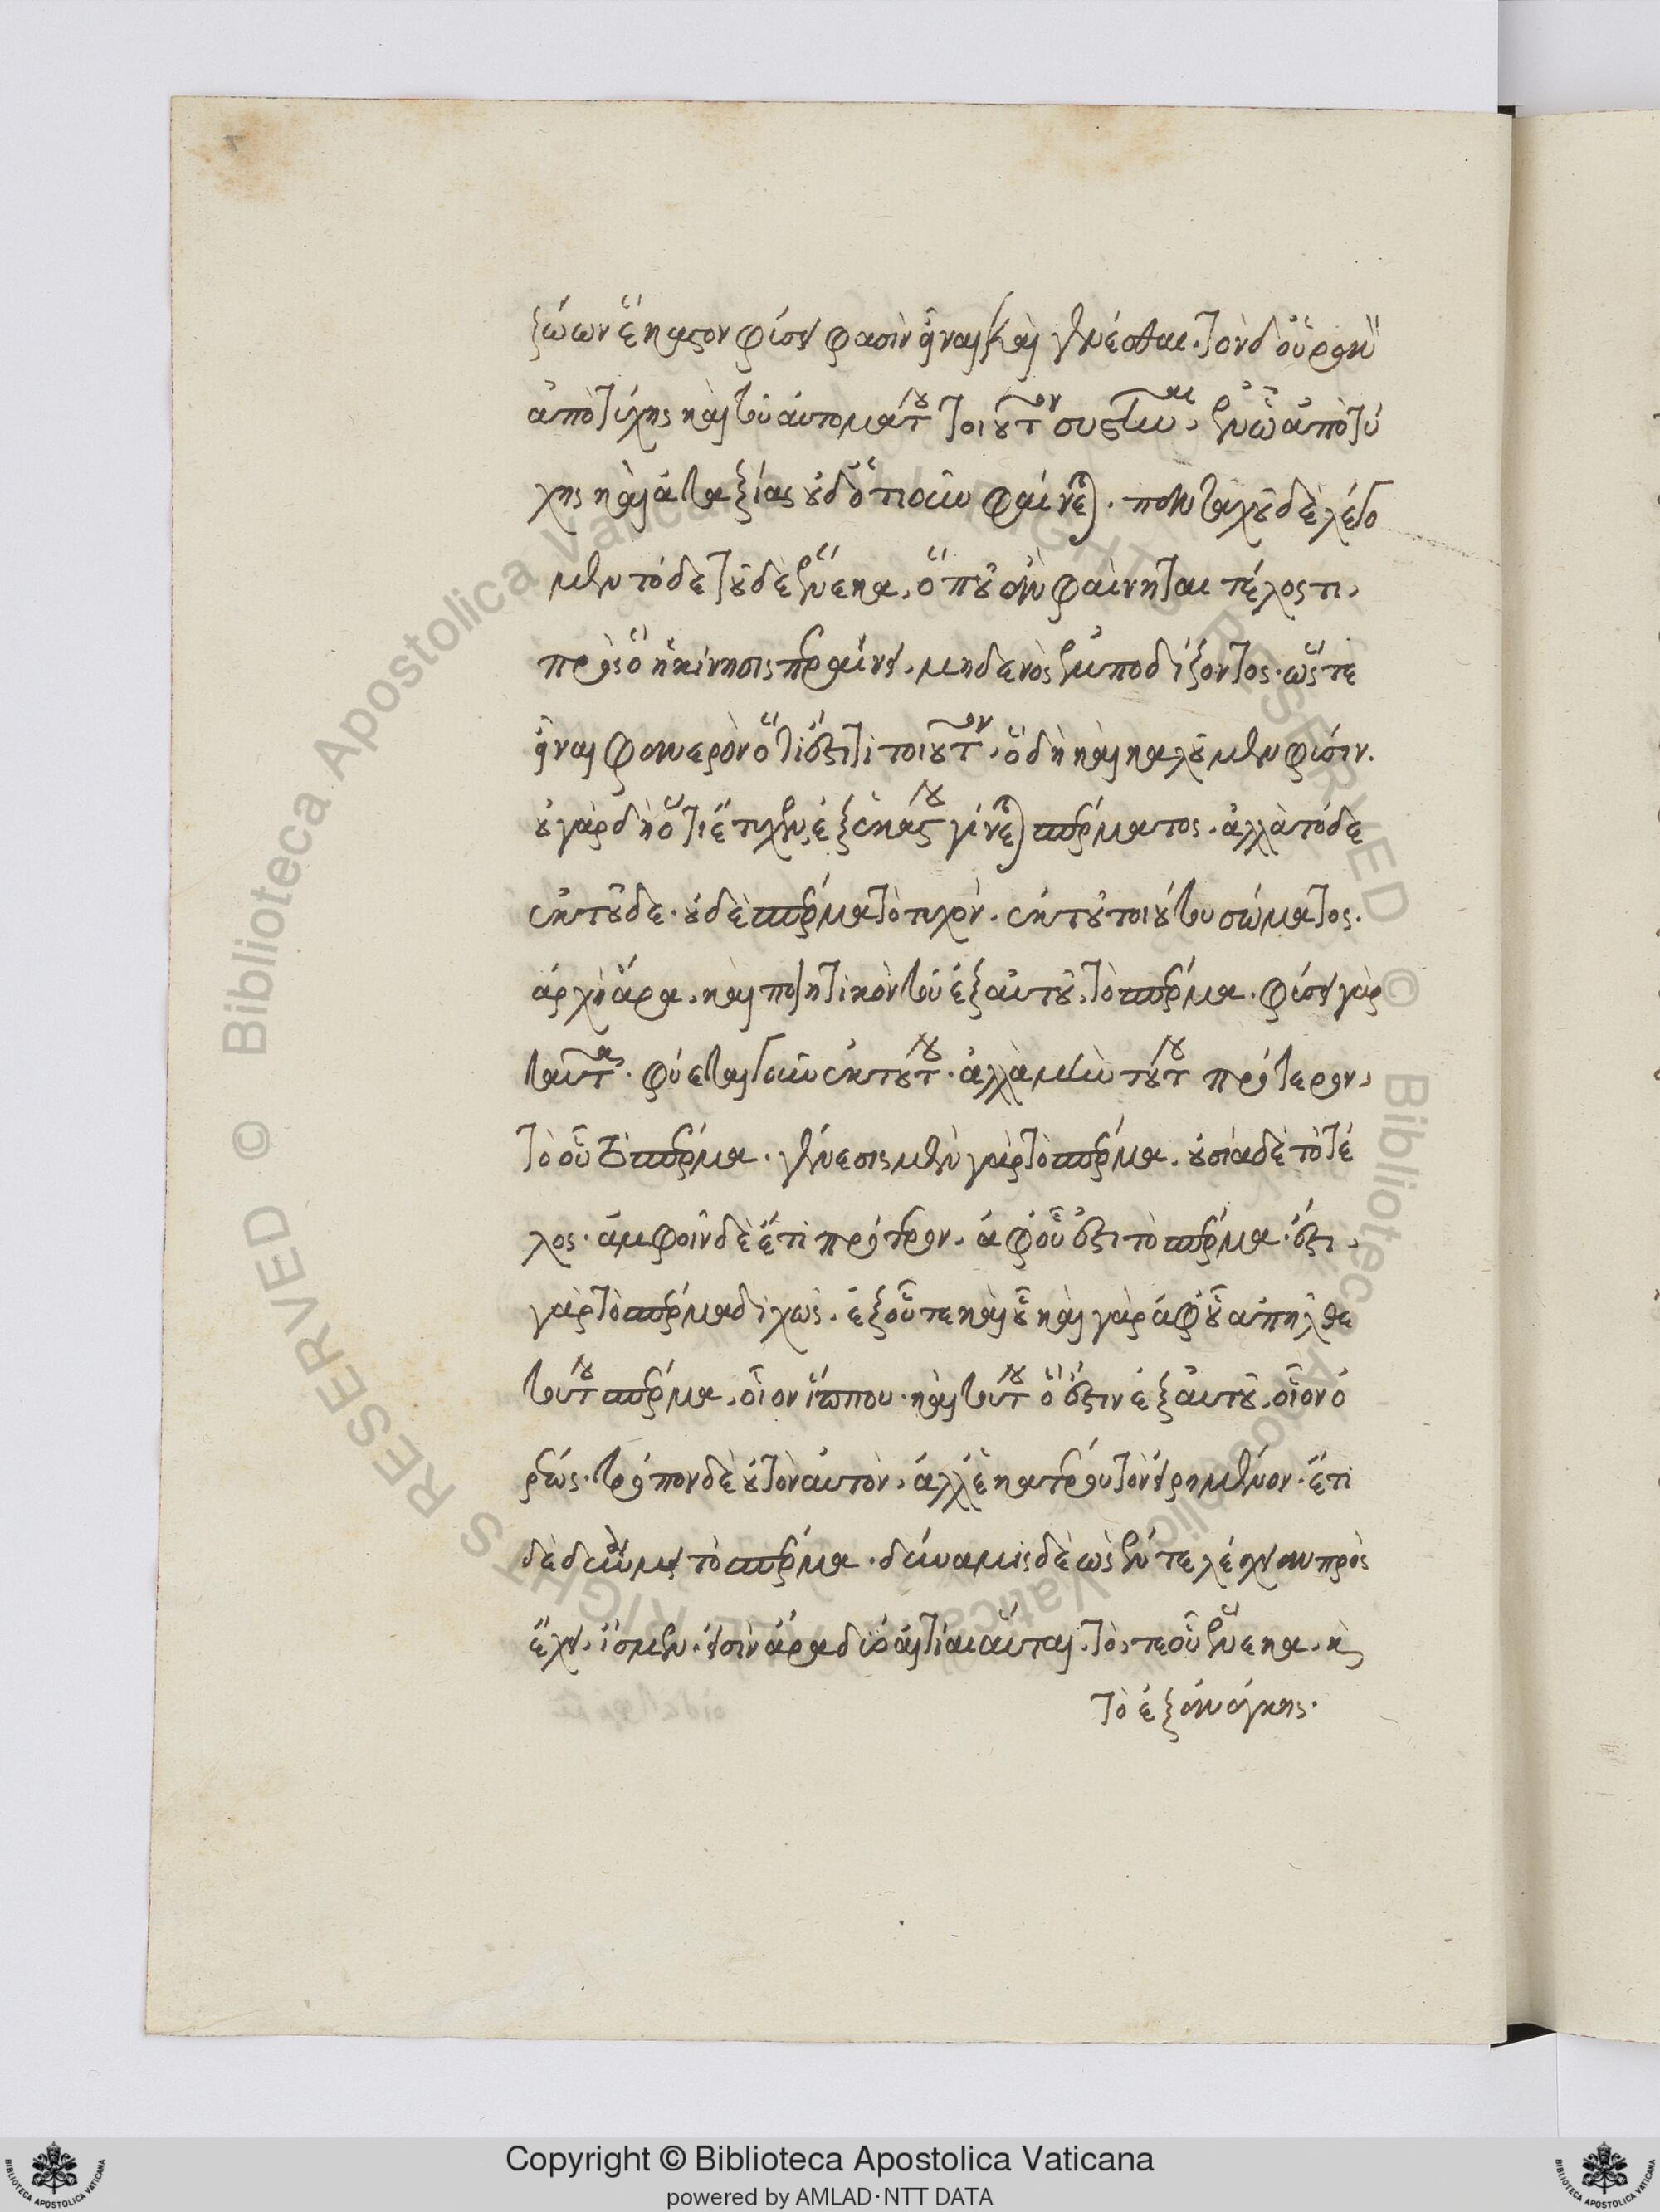 ζώων ἕκαστον φύσει φασὶν εἶναι καὶ γενέσθαι. τὸν δ' οὐρανὸν
ἀπὸ τύχης καὶ τοῦ αὐτομάτου τοιοῦτον συστῆναι, ἐν ᾧ ἀπὸ τύ
χης καὶ ἀταξίας οὐδ' ὁτιοῦν φαίνεται. πολλαχοῦ δὲ λέγο
μεν τόδε τοῦδε ἕνεκα, ὅπου ἂν φαίνηται τέλος τι,
πρὸς ὃ ἡ κίνησις περαίνει, μηδενὸς ἐμποδίζοντος. ὥστε
εἶναι φανερὸν ὅτι ἔστι τι τοιοῦτον, ὃ δὴ καὶ καλοῦμεν φύσιν.
οὐ γὰρ δὴ ὅτι ἔτυχεν, ἐξ ἑκάστου γίνεται σπέρματος. ἀλλὰ τόδε
ἐκ τοῦδε. οὐδὲ σπέρμα τὸ τυχὸν. ἐκ τοῦ τοιούτου σώματος.
ἀρχὴ ἄρα, καὶ ποιητικὸν τοῦ ἐξ αὐτοῦ, τὸ σπέρμα. φύσει γὰρ
ταῦτα. φύεται γοῦν ἐκ τούτου. ἀλλὰ μὴν τούτου πρότερον,
τὸ οὗ τὸ σπέρμα. γένεσις μὲν γὰρ τὸ σπέρμα. οὐσία δὲ τὸ τέ
λος. ἀμφοῖν δὲ ἔτι πρότερον, ἀφ' οὗ ἐστι τὸ σπέρμα. ἔστι,
γὰρ τὸ σπέρμα διχῶς. ἐξ οὗ τε καὶ οὗ καὶ γὰρ ἀφ' οὗ ἀπῆλθε
τούτου σπέρμα, οἷον ἵππου. καὶ τούτου ὅ ἐστιν ἐξ αὐτοῦ, οἷον ὀ
ρέως. τρόπον δὲ οὐ τὸν αὐτὸν, ἀλλ' ἑκατέρου τὸν εἰρημένον. ἔτι
δὲ δυνάμει τὸ σπέρμα. δύναμις δὲ ὡς ἐντελέχειαν πρὸς
ἔχει. ἴσμεν. εἰσὶν ἄρα δύο αἰτίαι αὗται. τό, τε οὗ ἕνεκα. καὶ
τὸ ἐξ ἀνάγκης.